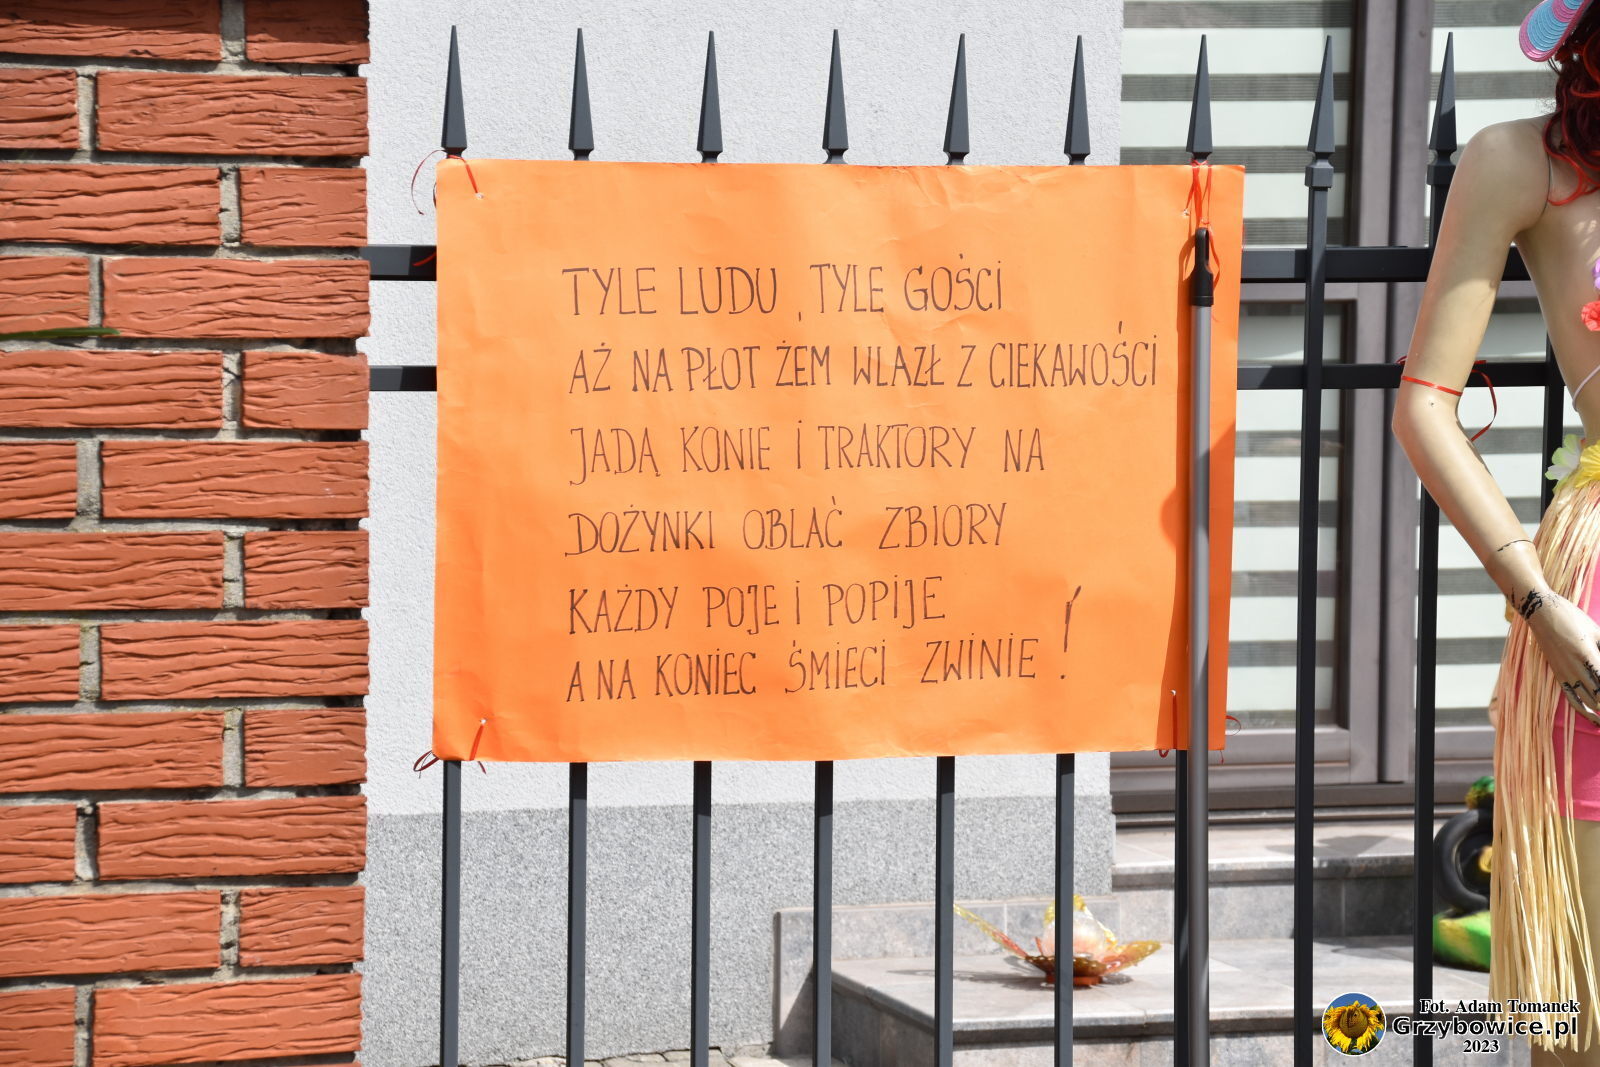 TYLE LUDU, TYLE GOŚCI
AŻ NA PŁOT ŻEM WLAZŁ Z CIEKAWOŚCI
JADĄ KONIE I TRAKTORY NA
DOŻYNKI OBLAĆ ZBIORY
KAŻDY POJE I POPIJE
A NA KONIEC ŚMIECI ZWINIE !
Fot. Adam Tomanek
Grzybowice.pl
2023